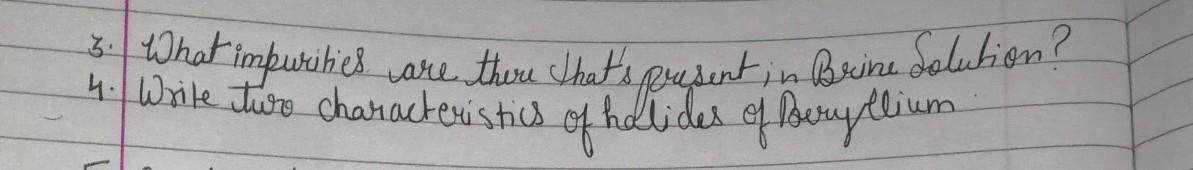 3. What impurities are there that's present in Brine Solution?
4. Write two characteristics of halides of Beryllium